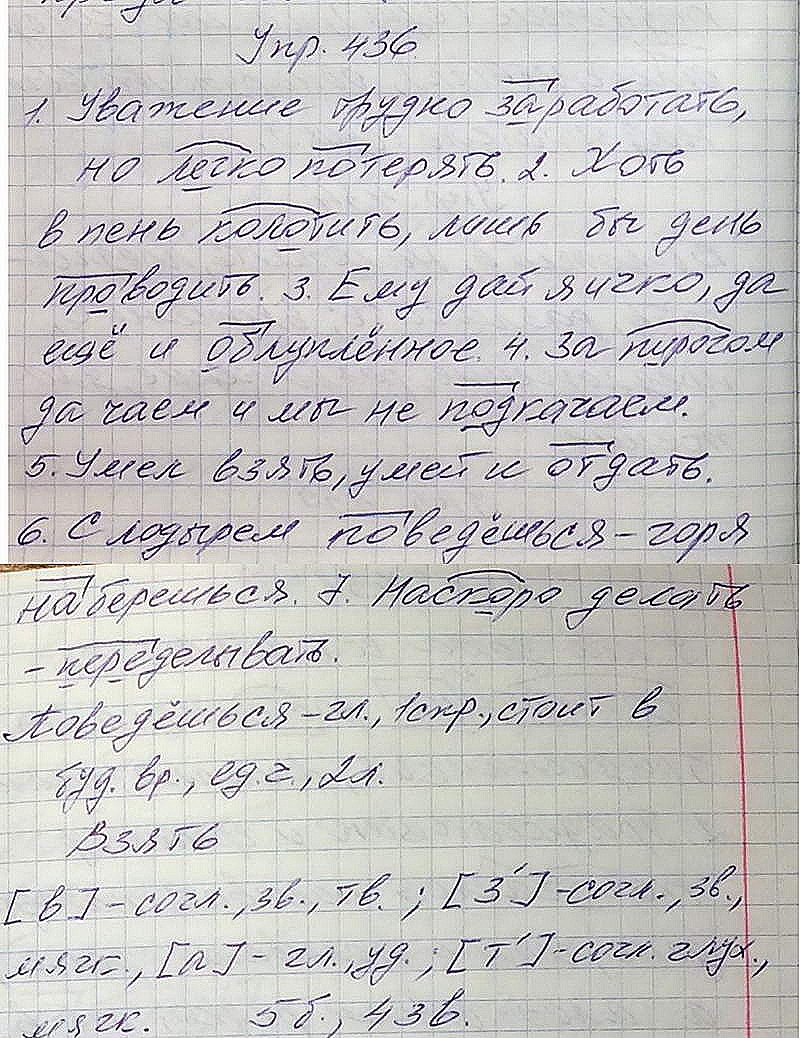 Упр. 436
1. Уважение трудно заработать,
но легко потерять. 2. Хоть
в пень колотить, лишь бы день
проводить. 3. Ему дай яичко, да
ещё и облуплённое. 4. За пирогом
да чаем и мы не подкачаем.
5. Умел взять, умей и отдать.
6. С лодырем поведёшься - горя
наберешься. 7. Наскоро делать
- переделывать.
Поведёшься - гл., 1 спр., стоит в
буд. вр., ед.ч., 2л.
Взять
[в] - согл., зв., тв. ; [з'] - согл., зв.,
мягк., [а] - гл., уд. ; [т'] - согл. глух.,
мягк. 5б., 4 зв.